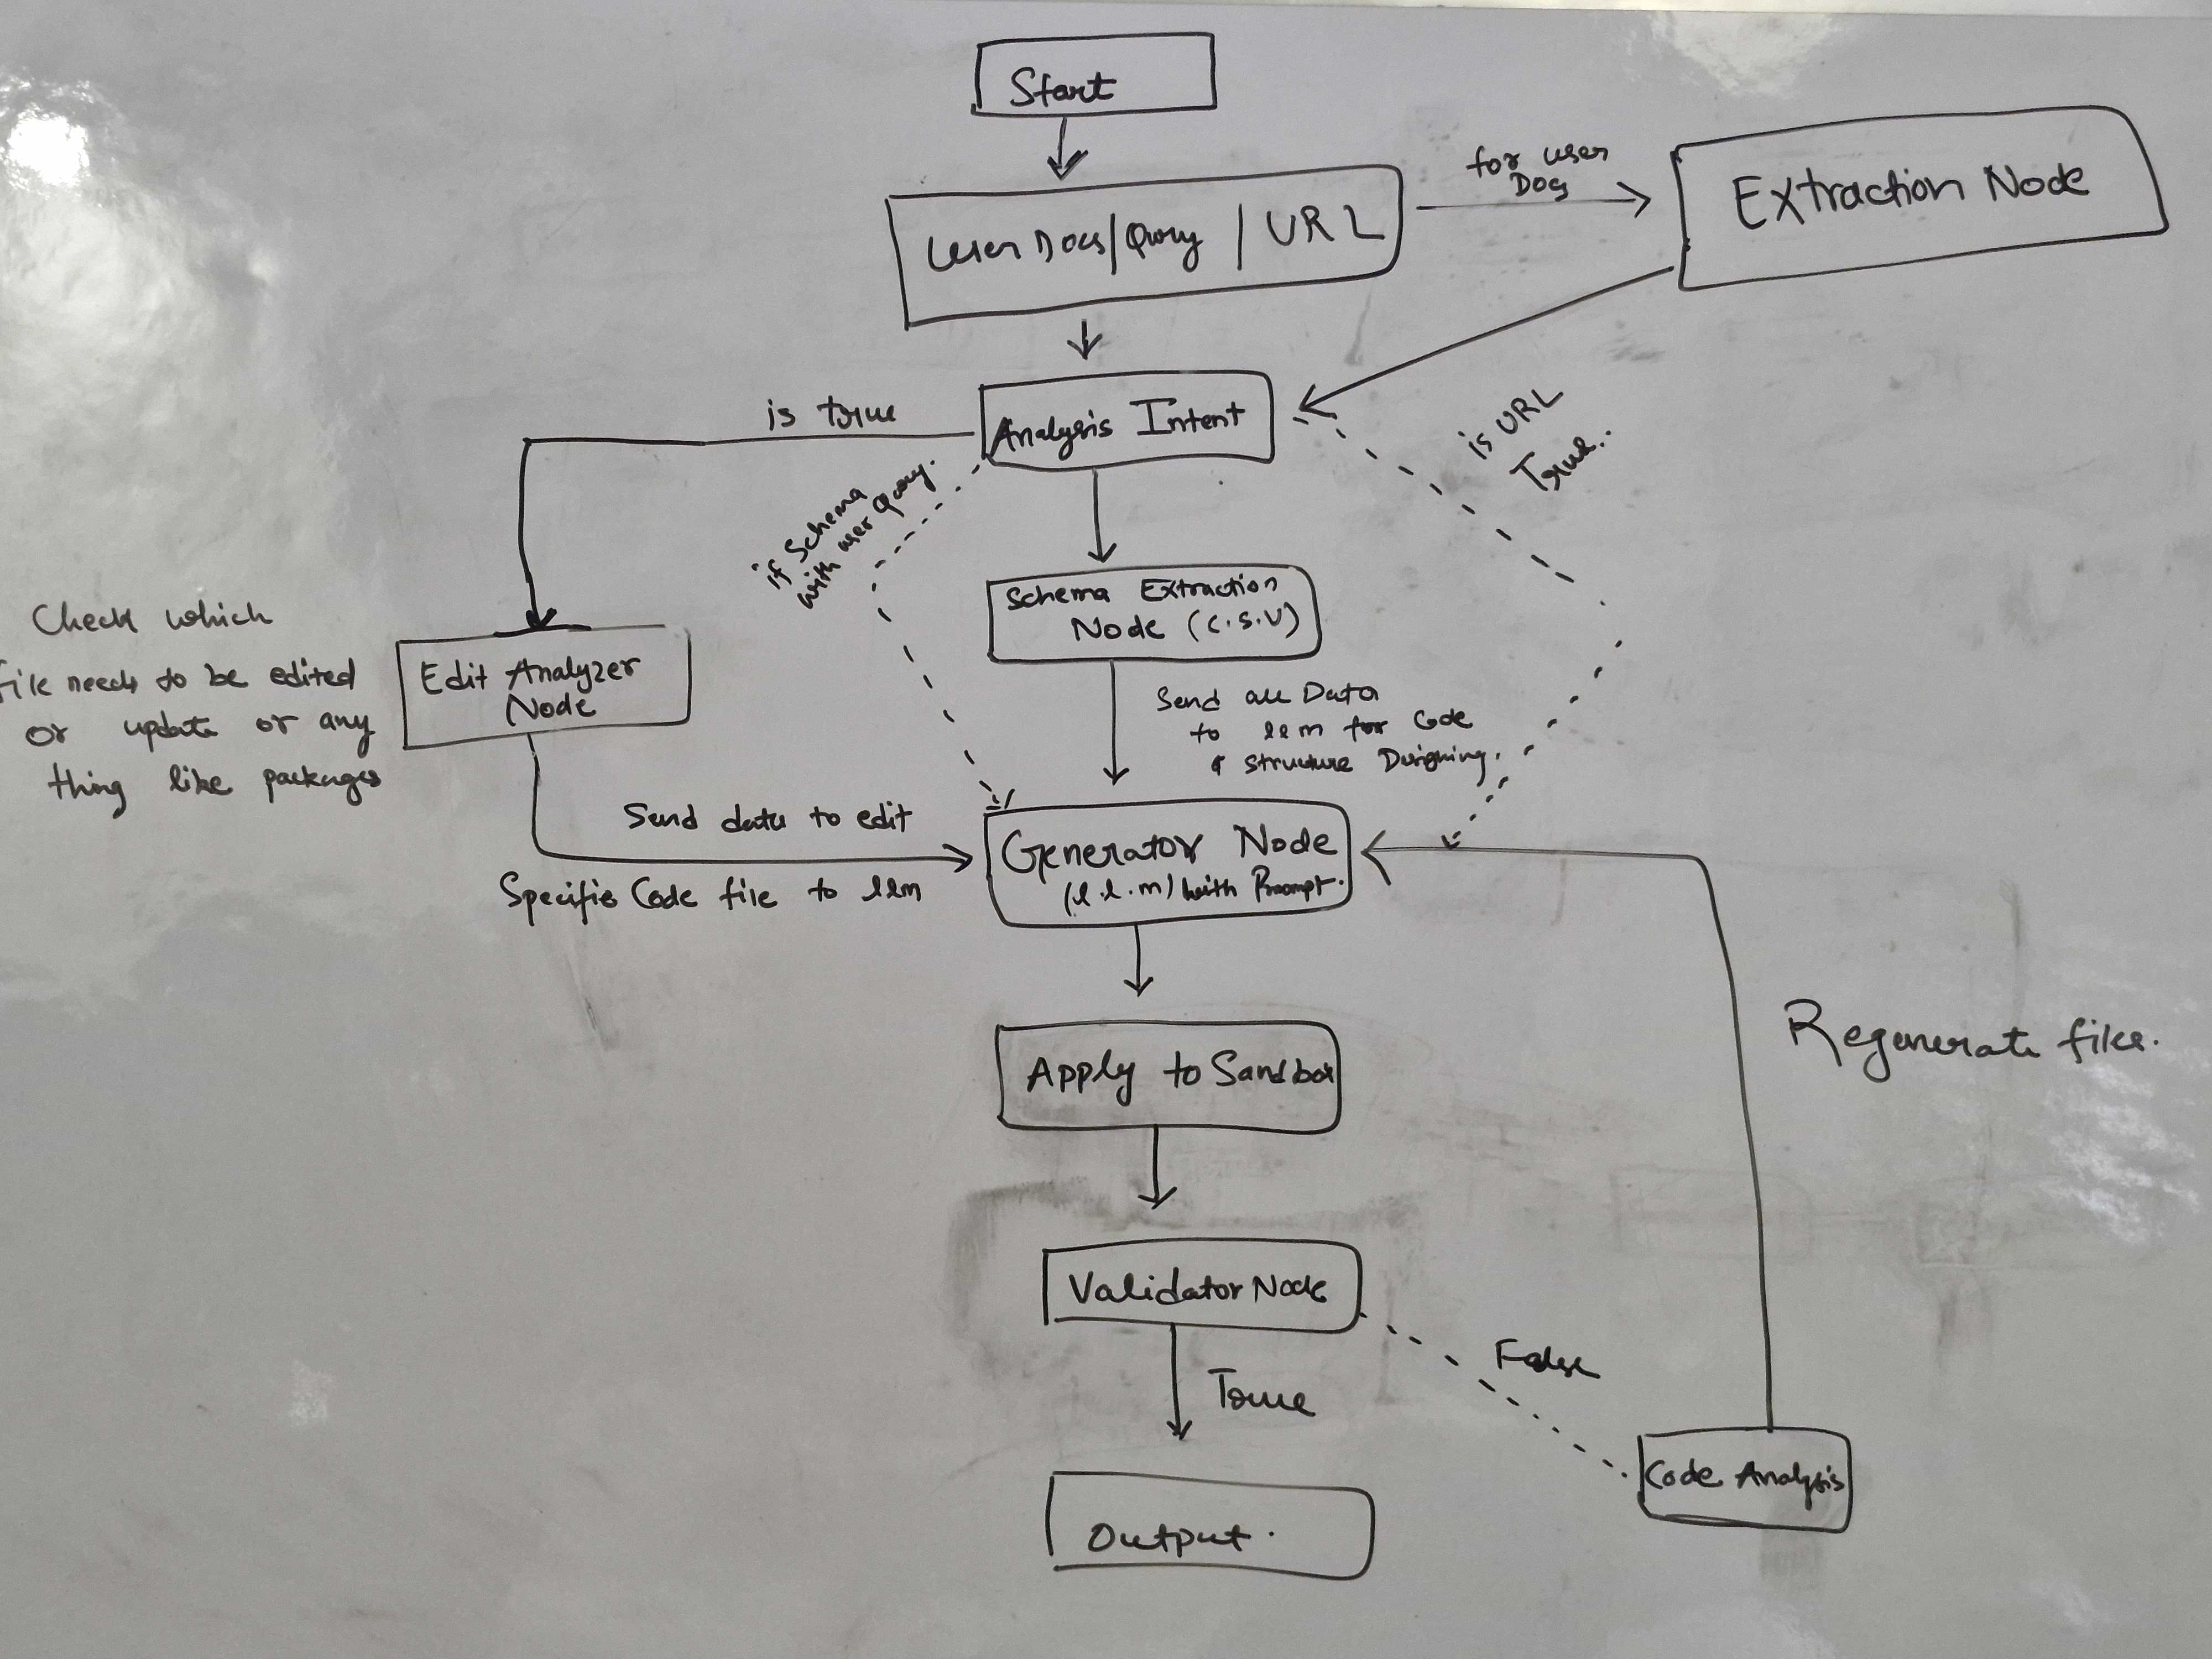 Start
for user
Docs
Extraction Node
User Docs/Query / URL
is true
Analysis Intent
is URL
True..
if Schema
with user Query.
Schema Extraction
Node (C.S.V)
Check which
file needs to be edited
or update or any
thing like packages
Edit Analyzer
Node
Send all Data
to llm for Code
& structure Designing.
Send data to edit
Specific Code file to llm
Generator Node
(l.l.m) with Prompt.
Apply to Sandbox
Regenerate files.
Validator Node
False
True
Code Analysis
Output.